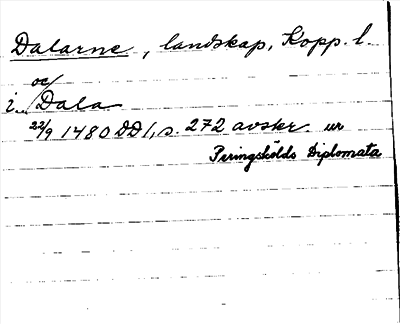 Dalarne, landskap, Kopp. l.
oc/
i Dala
22/9 1480 DD 1, s. 272 avskr. ur
Peringskölds Diplomata